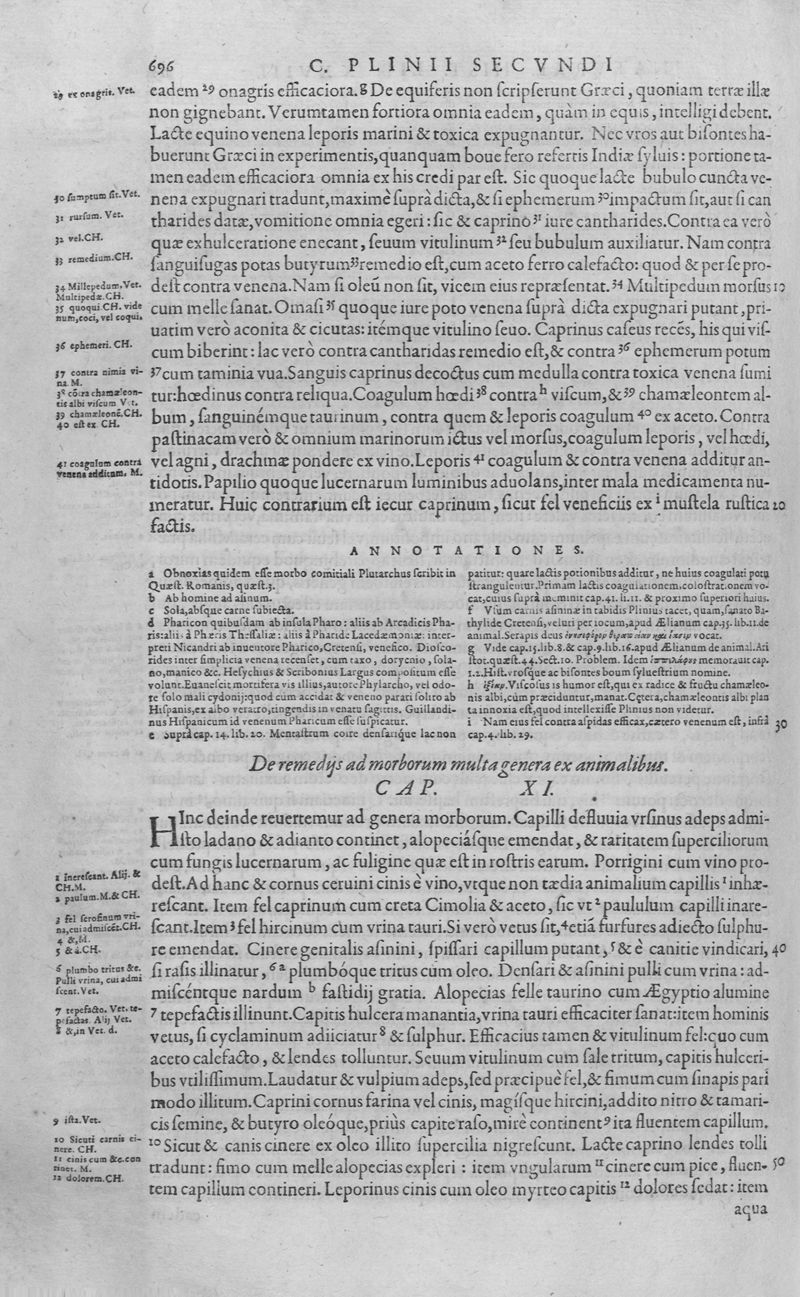 696 C. PLINII SECVNDI
29 ex onagris. Vet.
eadem 29 onagris efficaciora. g De equiferis non ſcripſerunt Græci, quoniam terræ illæ
non gignebant. Verumtamen fortiora omnia eadem, quàm in equis, intelligi debent.
Lacte equino venena leporis marini & toxica expugnantur. Nec vros aut biſontes ha-
buerunt Græci in experimentis, quanquam boue fero refertis Indiæ ſyluis: portione ta-
men eadem efficaciora omnia ex his credi par eſt. Sic quoque lacte bubulo cuncta ve-
30 ſumptum ſit. Vet.
nena expugnari tradunt, maximè ſuprà dicta, & ſi ephemerum 30 impactum ſit, aut ſi can
31 rurſum. Vet.
tharides datæ, vomitione omnia egeri: ſic & caprino 31 iure cantharides. Contra ea verò
32 vel. CH.
quæ exhulceratione enecant, ſeuum vitulinum 32 ſeu bubulum auxiliatur. Nam contra
33 remedium. CH.
ſanguiſugas potas butyrum 33 remedio eſt, cum aceto ferro calefacto: quod & per ſe pro-
34 Millepedum. Vet.
Multipedæ. CH.
deſt contra venena. Nam ſi oleū non ſit, vicem eius repræſentat. 34 Multipedum morſus 10
35 quoqui. CH. vide
num, coci, vel coqui.
cum melle ſanat. Omaſi 35 quoque iure poto venena ſuprà dicta expugnari putant, pri-
uatim verò aconita & cicutas: itémque vitulino ſeuo. Caprinus caſeus recēs, his qui viſ-
36 ephemeri. CH.
cum biberint: lac verò contra cantharidas remedio eſt, & contra 36 ephemerum potum
37 contra nimia vi-
na. M.
37 cum taminia vua. Sanguis caprinus decoctus cum medulla contra toxica venena ſumi
38 cōtra chamæleon-
tis albi viſcum. Vet.
tur: hœdinus contra reliqua. Coagulum hœdi 38 contra h viſcum, & 39 chamæleontem al-
39 chamæleonē. CH.
40 eſt ex. CH.
bum, ſanguinémque taurinum, contra quem & leporis coagulum 40 ex aceto. Contra
paſtinacam verò & omnium marinorum ictus vel morſus, coagulum leporis, vel hœdi,
41 coagulum contrà
venena additum. M.
vel agni, drachmæ pondere ex vino. Leporis 41 coagulum & contra venena additur an-
tidotis. Papilio quoque lucernarum luminibus aduolans, inter mala medicamenta nu-
meratur. Huic contrarium eſt iecur caprinum, ſicut fel veneficiis ex i muſtela ruſtica 20
factis.
ANNOTATIONES.
a Obnoxias quidem eſſe morbo comitiali Plutarchus ſcribit in
Quæſt. Romanis, quæſt. 3.
b Ab homine ad aſinum.
c Sola, abſque carne ſubiecta.
d Pharicon quibuſdam ab inſula Pharo: aliis ab Arcadicis Pha-
ris: alii à Pheris Theſſaliæ: aliis à Pharide Lacedæmoniæ: inter-
preti Nicandri ab inuentore Pharico, Cretenſi, venefico. Dioſco-
rides inter ſimplicia venena recenſet, cum taxo, dorycnio, ſola-
no, manico &c. Heſychius & Scribonius Largus compoſitum eſſe
volunt. Euaneſcit mortifera vis illius, autore Phylarcho, vel odo-
re ſolo mali cydonij: quod cùm accidat & veneno parari ſolito ab
Hiſpanis, ex albo veratro, tingendis in venatu ſagittis. Guillandi-
nus Hiſpanicum id venenum Pharicum eſſe ſuſpicatur.
e Suprà cap. 14. lib. 20. Mentaſtrum coire denſarique lac non
patitur: quare lactis potionibus additur, ne huius coagulati potu
ſtrangulentur. Primam lactis coagulationem, coloſtrationem vo-
cat, cuius ſuprà meminit cap. 41. li. 11. & proximo ſuperiori huius.
f Vſum carnis aſininæ in tabidis Plinius tacet, quam, ſanato Ba-
thylide Cretenſi, veluti per iocum, apud Ælianum cap. 35. lib. 11. de
animal. Serapis deus vocat.
g Vide cap. 15. lib. 8. & cap. 9. lib. 16. apud Ælianum de animal. Ari
ſtot. quæſt. 44. Sect. 10. Problem. Idem memorauit cap.
1. 2. Hiſt. vroſque ac biſontes boum ſylueſtrium nomine.
h Viſcoſus is humor eſt, qui ex radice & fructu chamæleo-
nis albi, cùm præciduntur, manat. Cętera, chamæleontis albi plan
ta innoxia eſt, quod intellexiſſe Plinius non videtur.
i Nam eius fel contra aſpidas efficax, cætero venenum eſt, infrà 30
cap. 4. lib. 29.
De remedijs ad morborum multa genera ex animalibus.
CAP. XI.
HInc deinde reuertemur ad genera morborum. Capilli defluuia vrſinus adeps admi-
ſto ladano & adianto continet, alopeciáſque emendat, & raritatem ſuperciliorum
cum fungis lucernarum, ac fuligine quæ eſt in roſtris earum. Porrigini cum vino pro-
1 increſcant. Alij. &
CH. M.
deſt. Ad hanc & cornus ceruini cinis è vino, vtque non tædia animalium capillis 1 inhæ-
2 paulum. M. & CH.
reſcant. Item fel caprinum cum creta Cimolia & aceto, ſic vt 2 paululum capilli inare-
3 fel ſcrofinum vri-
na, cui admiſcēt. CH.
ſcant. Item 3 fel hircinum cum vrina tauri. Si verò vetus ſit, 4 etiā furfures adiecto ſulphu-
4 &, id.
5 & à. CH.
re emendat. Cinere genitalis aſinini, ſpiſſari capillum putant, 5 & è canitie vindicari, 40
6 plumbo tritus &c.
Pulli vrina, cui admi
ſcent. Vet.
ſi raſis illinatur, 6 a plumbóque tritus cum oleo. Denſari & aſinini pulli cum vrina: ad-
miſcéntque nardum b faſtidij gratia. Alopecias felle taurino cum Ægyptio alumine
7 tepefacto. Vet. te-
pefactas. Alij Vet.
7 tepefactis illinunt. Capitis hulcera manantia, vrina tauri efficaciter ſanat: item hominis
8 &, in Vet. d.
vetus, ſi cyclaminum adiiciatur 8 & ſulphur. Efficacius tamen & vitulinum fel: quo cum
aceto calefacto, & lendes tolluntur. Seuum vitulinum cum ſale tritum, capitis hulceri-
bus vtiliſſimum. Laudatur & vulpium adeps, ſed præcipuè fel, & fimum cum ſinapis pari
modo illitum. Caprini cornus farina vel cinis, magíſque hircini, addito nitro & tamari-
9 iſta. Vet.
cis ſemine, & butyro oleóque, priùs capite raſo, mirè continent 9 ita fluentem capillum.
10 Sicuti carnis ci-
nere. CH.
10 Sicut & canis cinere ex oleo illito ſupercilia nigreſcunt. Lacte caprino lendes tolli
11 cinis cum &c. con
tinet. M.
tradunt: fimo cum melle alopecias expleri: item vngularum 11 cinere cum pice, fluen- 50
12 dolorem. CH.
tem capillum contineri. Leporinus cinis cum oleo myrteo capitis 12 dolores ſedat: item
aqua